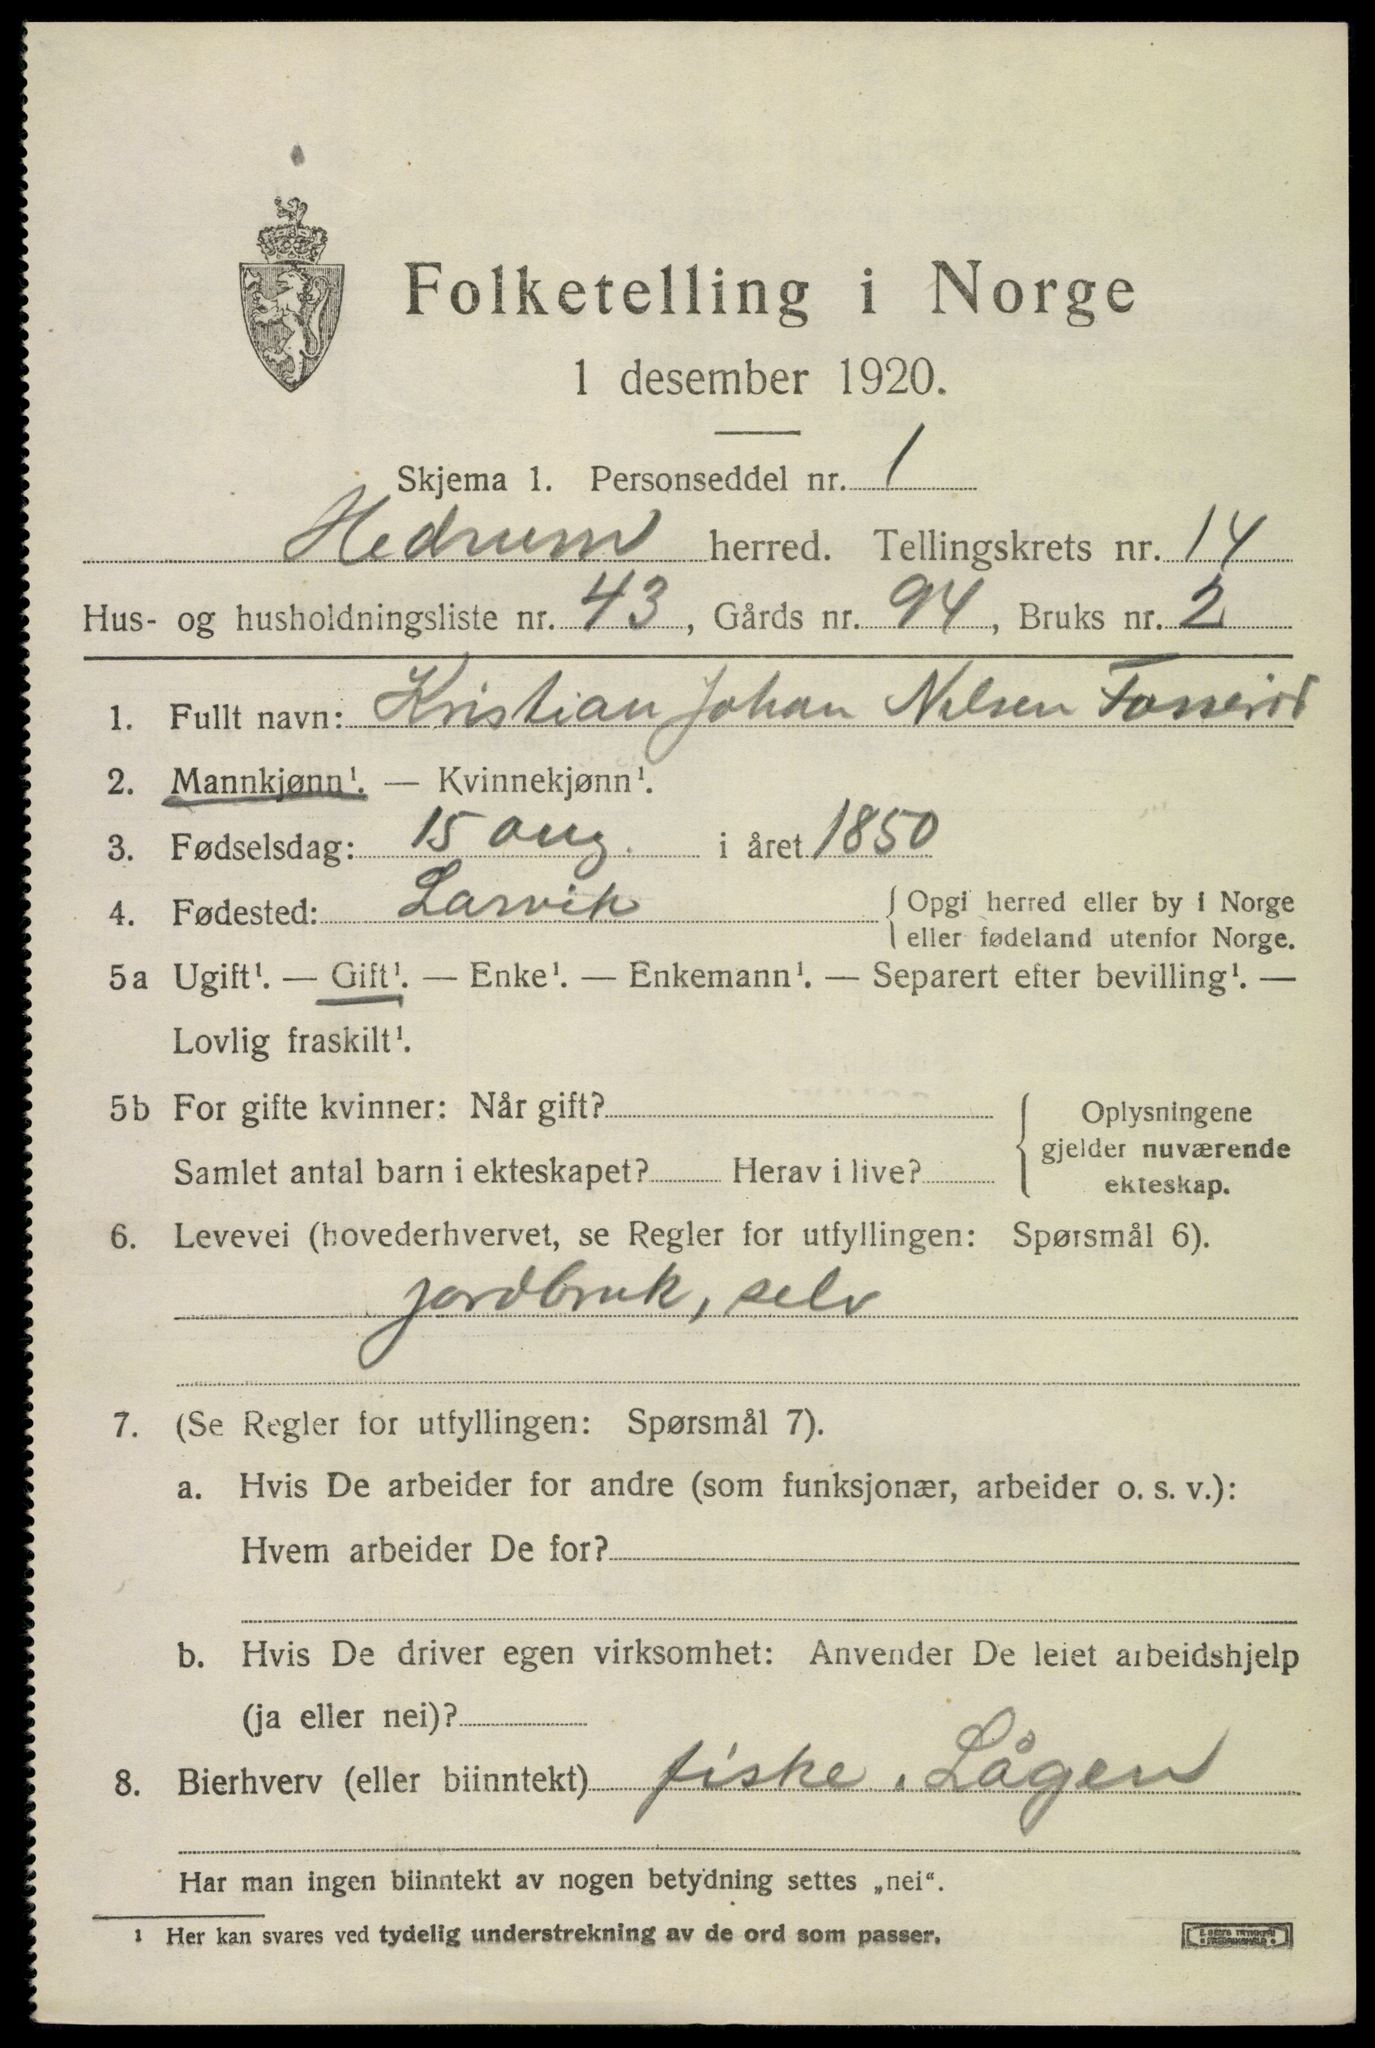 Folketelling i Norge
1 desember 1920.
Skjema 1. Personseddel nr. 1
Hedrum herred. Tellingskrets nr. 14
Hus- og husholdningsliste nr. 43, Gårds nr. 94, Bruks nr. 2
1. Fullt navn: Kristian Johan Nilsen
2. Mannkjønn¹. — Kvinnekjønn¹.
3. Fødselsdag: 15 aug. i året 1850
4. Fødested: Larvik { Opgi herred eller by i Norge
eller fødeland utenfor Norge.
5a Ugift¹. — Gift¹. — Enke¹. — Enkemann¹. — Separert efter bevilling¹. —
Lovlig fraskilt¹.
5b For gifte kvinner: Når gift?
Samlet antal barn i ekteskapet? Herav i live?
{ Oplysningene
gjelder nuværende
ekteskap.
6. Levevei (hovederhvervet, se Regler for utfyllingen: Spørsmål 6).
jordbruk, selv
7. (Se Regler for utfyllingen: Spørsmål 7).
a. Hvis De arbeider for andre (som funksjonær, arbeider o. s. v.):
Hvem arbeider De for?
b. Hvis De driver egen virksomhet: Anvender De leiet arbeidshjelp
(ja eller nei)?
8. Bierhverv (eller biinntekt) fiske i Lågen
Har man ingen biinntekt av nogen betydning settes „nei“.
¹ Her kan svares ved tydelig understrekning av de ord som passer.